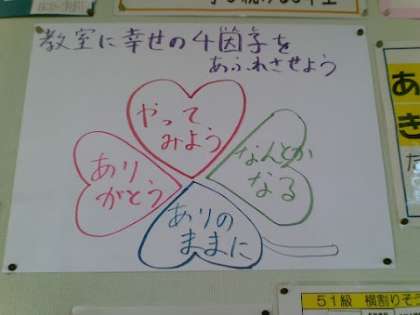 教室に幸せの4因子を
あふれさせよう
やって
みよう
あり
がとう
なんとか
なる
ありの
ままに
あ
き
た
51級 横割りそう